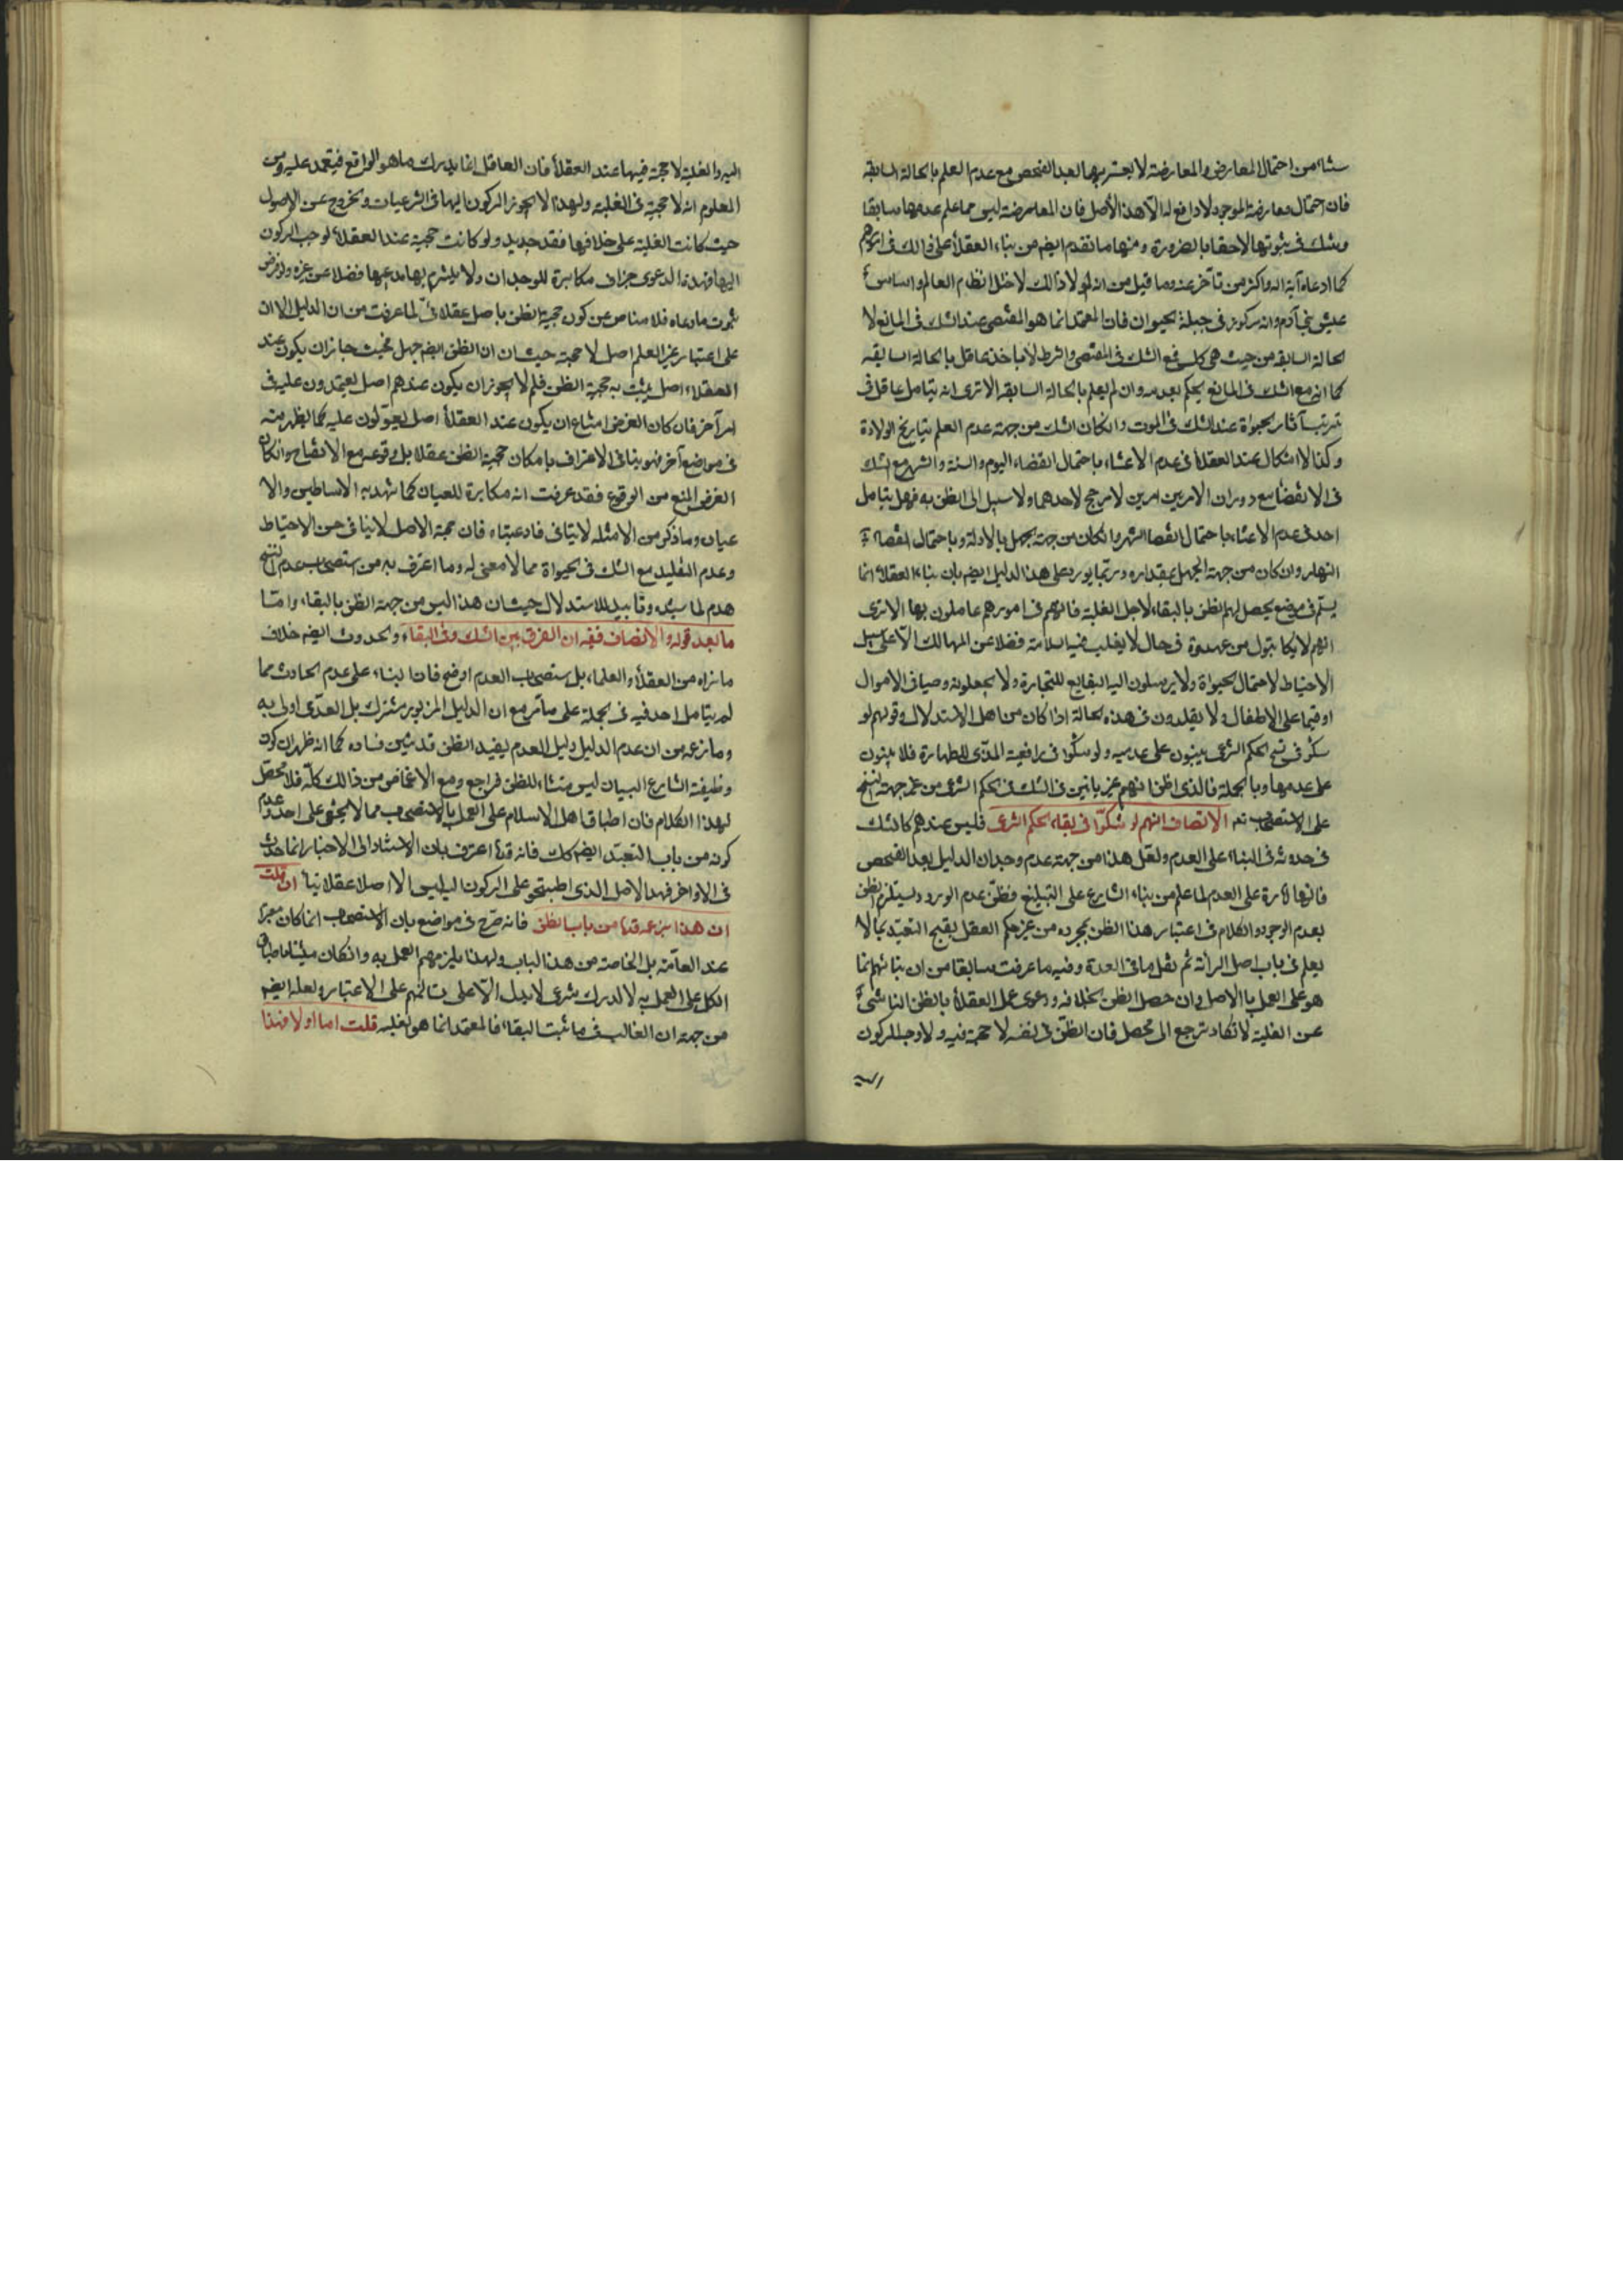 سناء من احتمال المعارض والمعارضة لا يعتريها بعد الفحص مع عدم العلم بالحالة السابقة
فان احتمال معارضة الموجود لا دافع له الا هذا الأصل فان المعارضة ليس مما علم عدمها سابقا
وشك فى ثبوتها لاحقا بالضرورة ومنها ما تقدم ايضم من بناء العقلاء على ذالك فى امورهم
كما ادعاه آية الله واكثر من تأخر عنه وما قيل من انه لولا ذالك لاختل نظام العالم واساس
عيش بنى آدم وانه مركوز فى جبلة الحيوان فان المعتمد انما هو المقتضى عند الشك فى المانع لا
الحالة السابقه من حيث هى كلى فمع الشك فى المقتضى والشرط لا ياخذ عاقل بالحالة السابقه
كما انه مع الشك فى المانع يحكم بعدمه وان لم يعلم بالحالة السابقه الا ترى انه يتامل عاقل فى
ترتيب آثار الحيوة عند الشك فى الموت وانكان الشك من جهة عدم العلم بتاريخ الولادة
وكذا لا اشكال عند العقلاء فى عدم الاعتناء باحتمال انقضاء اليوم والسنة والشهر مع الشك
فى الانقضاء مع دوران الامر بين امرين لا مرجح لاحدهما ولا سبيل الى الظن به فهل يتامل
احد فى عدم الاعتناء باحتمال انقضا الشهر وانكان من جهة الجهل بالادلة وباحتمال انقضاء
النهار وان كان من جهة الجهل بمقداره وربما يورد على هذا الدليل ايضم بان بناء العقلاء انما
يسلم فى موضع يحصل لهم الظن بالبقاء لاجل الغلبة فانهم فى امورهم عاملون بها الا ترى
انهم لا يكاتبون من عهدوه فى حال لا يغلب فيه السلامة فضلا عن المهالك الا على سبيل
الاحتياط لاحتمال الحيوة ولا يرسلون اليه البضايع للتجارة ولا يجعلونه وصيا فى الاموال
او قيما على الاطفال ولا يقلدون فى هذه الحالة اذا كان من اهل الاستدلال وقولهم لو
شكو فى نسخ الحكم الشرعى يبنون على عدمه ولو شكوا فى رافعية المذى للطهارة فلا يبنون
على عدمها وبالجملة فالذى اظن انهم غير بانين فى الشك فى الحكم الشرعى من غير جهة النسخ
على الاستصحاب نعم الانصاف انهم لو شكوا فى بقاء الحكم الشرعى فليس عندهم كالشك
فى حدوثه فى البناء على العدم ولعل هذا من جهة عدم وجدان الدليل بعد الفحص
فانها امارة على العدم لما علم من بناء الشارع على التبليغ فظن عدم الورود يستلزم الظن
بعدم الوجود والكلام فى اعتبار هذا الظن بمجرده من غير حكم العقل بقبح التعبد بما لا
يعلم فى باب اصل البرائة ثم نقل ما فى العدة وفيه ما عرفت سابقا من ان بنائهم انما
هو على العمل بالاصل وان حصل الظن بخلافه ودعوى عمل العقلاء بالظن الناشى
عن الغلبة لا تكاد ترجع الى محصل فان الظن فى نفسه لا حجة فيه ولا وجه للركون
اليه
اليه والغلبة لا حجة فيها عند العقلاء فان العاقل انما يدرك ما هو الواقع فيعتمد عليه ومن
المعلوم انه لا حجية فى الغلبة ولهذا لا يجوز الركون اليها فى الشرعيات والخروج عن الاصول
حيث كانت الغلبة على خلافها فقد جديد ولو كانت حجية عند العقلاء لوجب الركون
اليها فهذه الدعوى جزاف مكابرة للوجدان ولا يلتزم بها مدعيها فضلا عن غيره ولو فرض
ثبوت مادعاه فلا مناص عن كون حجية الظن باصل عقلائى لما عرفت من ان الدليل الا ان
على اعتبار غير العلم اصل لا حجية حيث ان الظن ايضم جهل فحيث جاز ان يكون عند
العقلاء اصل يثبت به حجية الظن فلم لا يجوز ان يكون عندهم اصل يعتمدون عليه فى
امر آخر فان كان الغرض امتناع ان يكون عند العقلاء اصل يعولون عليه كما يظهر منه
فى مواضع آخر فهو ينافى الاعتراف بامكان حجية الظن عقلا بل وقوعه مع الانفتاح وانكان
الغرض المنع من الوقوع فقد عرفت انه مكابرة للعيان كما شهد به الاساطين والا
عيان وما ذكر من الامثله لا ينافى فادعيناه فان حجية الاصل لا ينافى حسن الاحتياط
وعدم التقليد مع الشك فى الحيوة مما لا معنى له وما اعترف به من استصحاب عدم النسخ
هدم لما سبق وتاييد للاستدلال حيث ان هذا ليس من جهة الظن بالبقاء وامّا
ما بعد قوله والانصاف ففيه ان الفرق بين الشك فى البقاء والحدوث ايضم خلاف
ما نراه من العقلاء والعلماء بل استصحاب العدم اوضح فان البناء على عدم الحادث مما
لم يتامل احد فيه فى الجملة على ما مر مع ان الدليل المزبور مشترك بل العدمى اولى به
وما زعمه من ان عدم الدليل دليل العدم يفيد الظن قد تبين فساده كما انه ظهر ان كون
وظيفة الشارع البيان ليس منشاء للظن فراجع ومع الاغماض من ذالك كله فلا محصل
لهذا الكلام فان اطباق اهل الاسلام على العمل بالاستصحاب مما لا يخفى على احد وعدم
كونه من باب التعبد ايضم كك فانه قدء اعترف بان الاستناد الى الاخبار انما حدث
فى الاواخر فهذا الاصل الذى اطبقوا على الركون اليه ليس الا اصلا عقلائيا ان قلت
ان هذا بزعمه قدء من باب الظن فانه صرح فى مواضع بان الاستصحاب انما كان معتبرا
عند العامة بل الخاصة من هذا الباب ولهذا يلزمهم العمل به وانكان مبنى اطباق
الكل على العمل به لا لدرك شرعى لا يدل الا على بنائهم على الاعتبار ولعله ايضم
من جهة ان الغالب فى ما ثبت البقاء فالمعتمد انما هو الغلبه قلت اما اولا فهذا